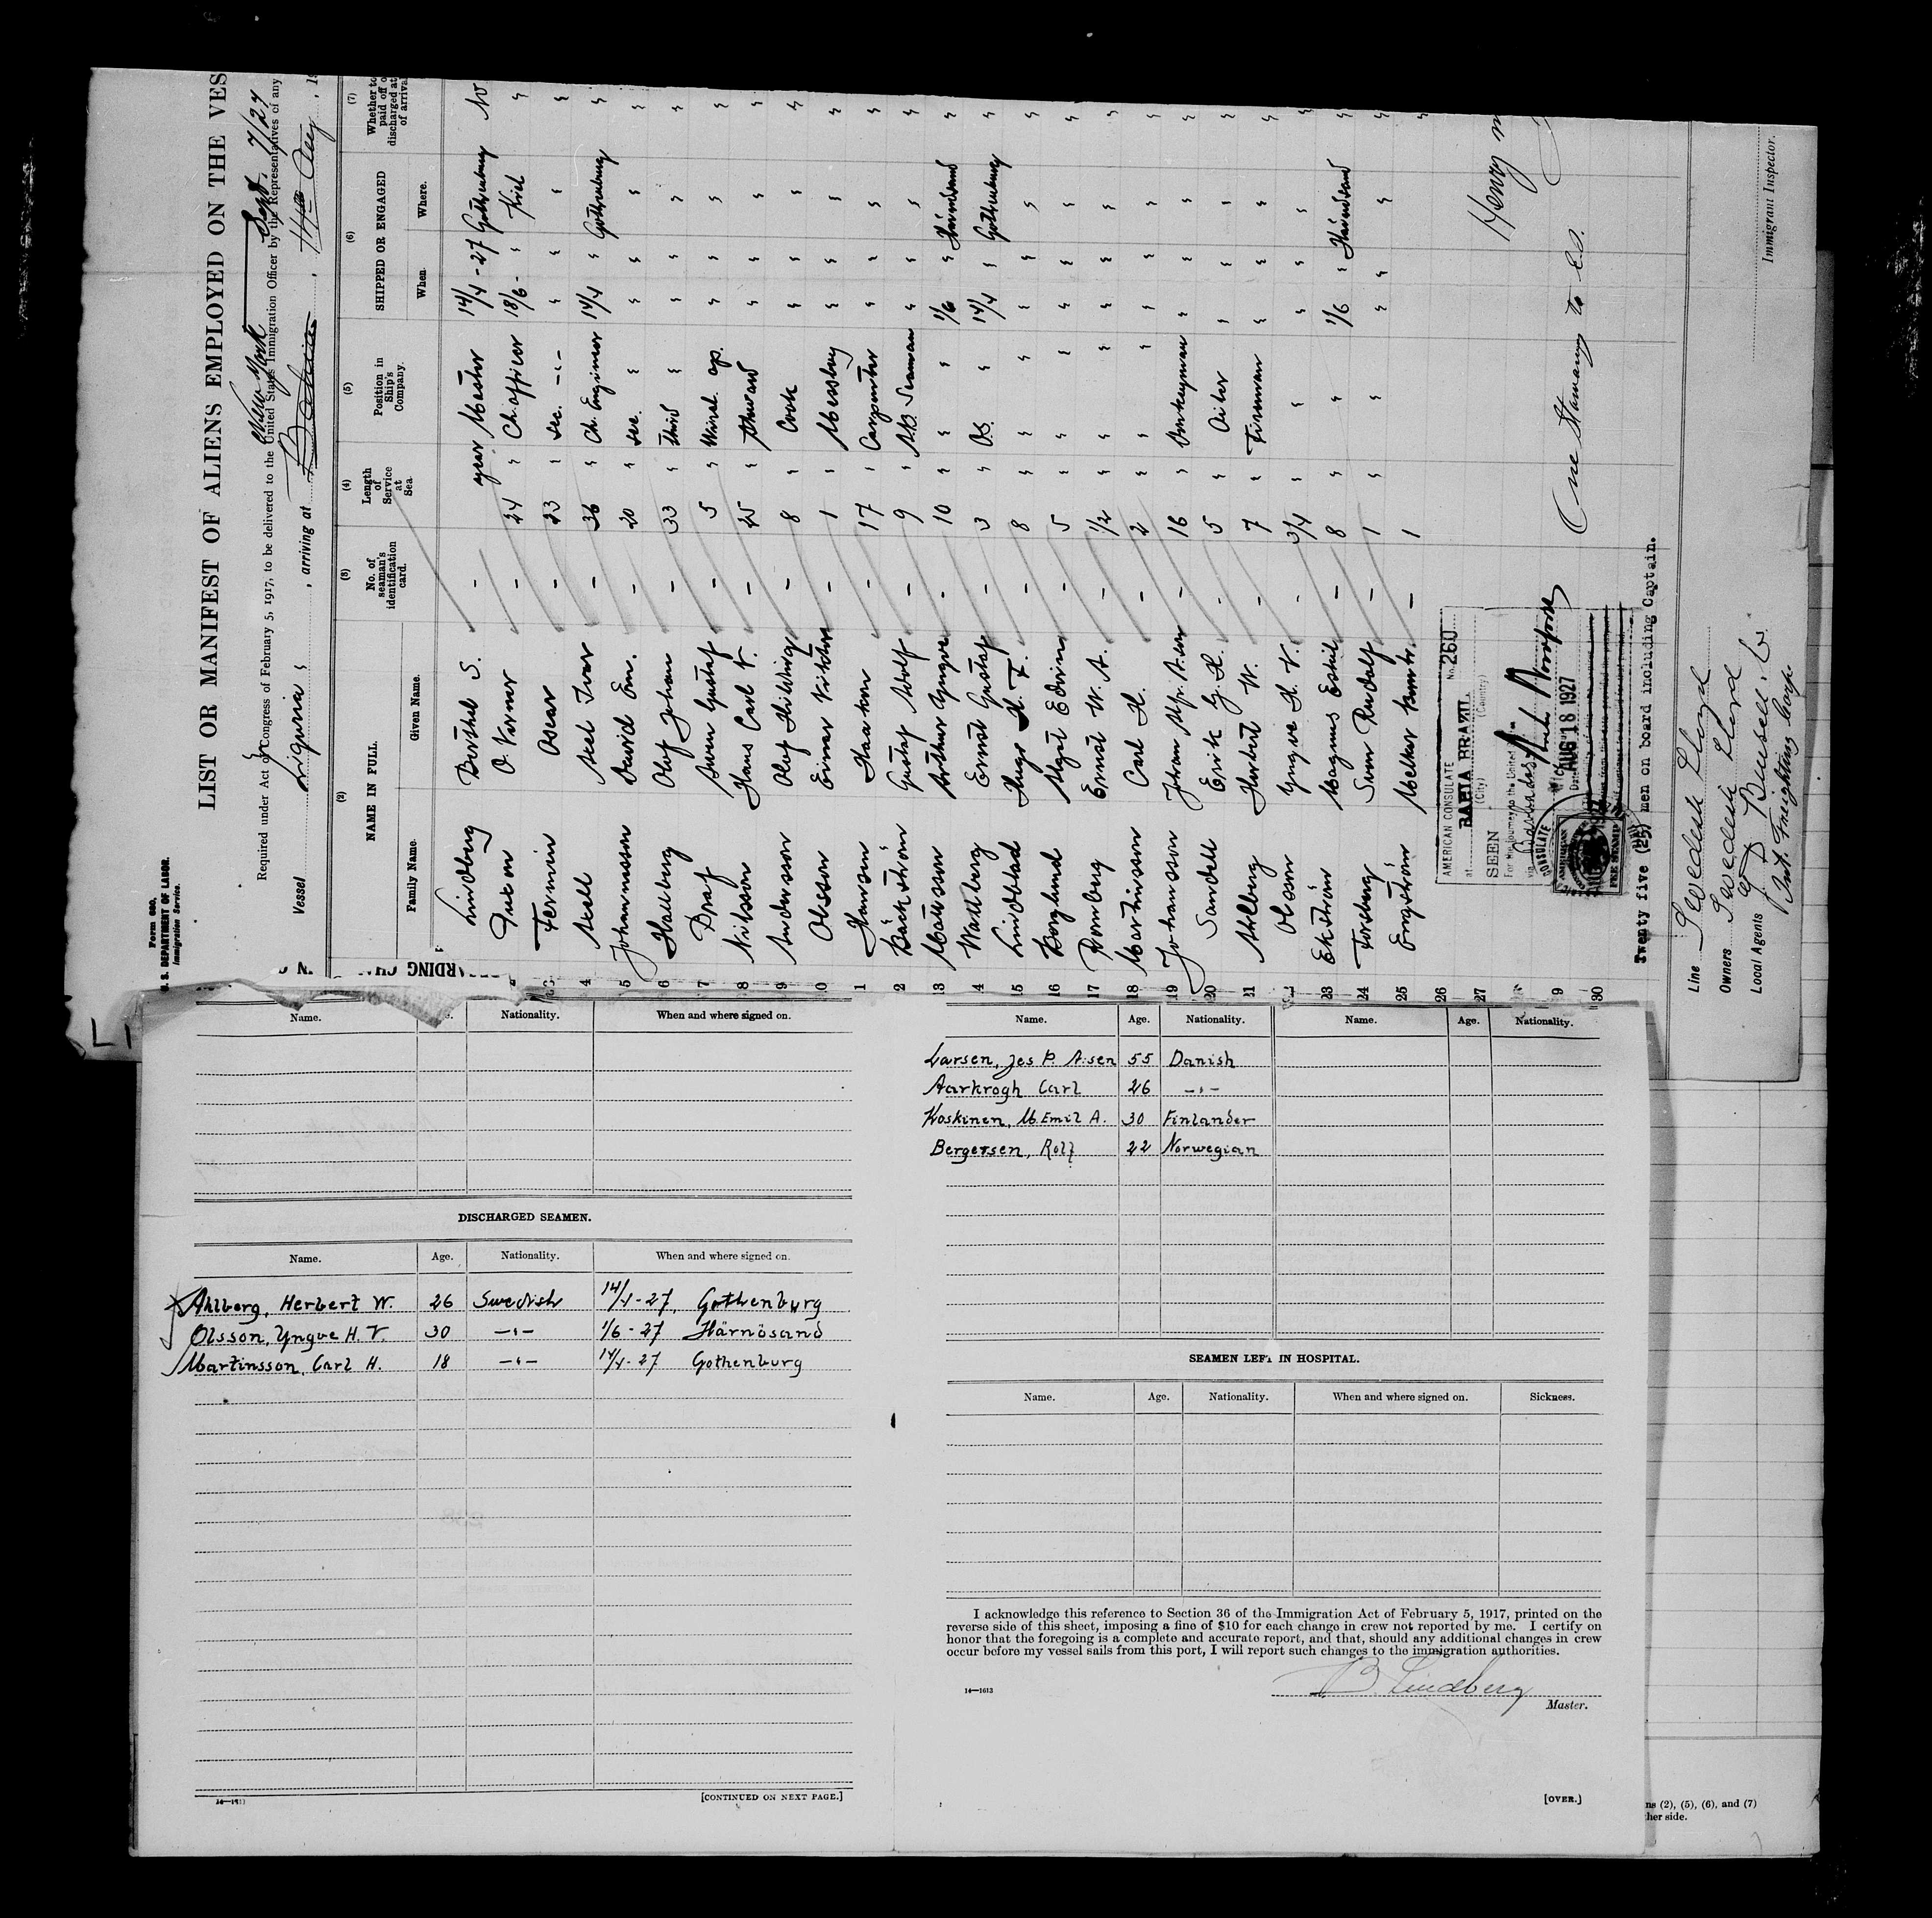 Form 680,
U. S. DEPARTMENT OF LABOR.
Immigration Service.
LIST OR MANIFEST OF ALIENS EMPLOYED ON THE VES
New York Sept. 7/27
Required under Act of Congress of February 5, 1917, to be delivered to the United States Immigration Officer by the Representatives of any
Vessel Liguria, arriving at Bahia, 19
(2) (3) (4) (5) (6) (7)
NAME IN FULL. No. of seaman's identification card. Length of Service at Sea. Position in Ship's Company. SHIPPED OR ENGAGED Whether to paid off o discharged at of arrival
Family Name. Given Name. When. Where.
Lindberg Berthel S. - year Master 14/4 - 27 Gothenburg No
O. Verner - 24 " Ch. officer 18/6 - " Kiel "
3 Fermin Oscar - 23 " sec. -"- " " " "
4 Axel Ivar - 36 " Ch. Engineer 14/4 " Gothenburg "
5 Johannesson David Em. - 20 " sec. " " " " "
6 Hallberg Olof Johan - 33 " third " " " " "
7 Sven Gustaf - 5 " Wirel. op. " " " "
8 Nilsson Hans Carl V. - 25 " Steward " " " "
9 Andersson Olof Hilding - 8 " Cook " " " "
10 Olsson Einar Viktor - 1 " Messboy " " " "
1 Hansen Haakon - 17 " Carpenter " " " "
2 Bäckström Gustaf Adolf - 9 " A.B. Seaman " " " "
13 Månsson Arthur Yngve - 10 " " " 1/6 " Härnösand "
4 Wallberg Ernst Gustaf - 3 " O.S. " 14/4 " Gothenburg "
15 Lindblad Hugo H. F. - 8 " " " " " " "
16 Berglund Algot Edvin - 5 " " " " " " "
17 Ernst W. A. - 1/2 " " " " " " "
18 Martinsson Carl H. - 2 " " " " " " "
19 Johansson Johan Alfr. A.son - 16 " Donkeyman " " " "
20 Sandell Erik G. H. - 5 " Oiler " " " "
21 Ahlberg Herbert W. - 7 " Fireman " " " "
22 Olsson Yngve H. V. - 3/4 " " " " " "
23 Ekström Magnus Eskil - 8 " " 1/6 " Härnösand "
24 Forsberg Sven Rudolf - 1 " " " " " "
25 Engström Melker - 1 "
26
27
9
30
AMERICAN CONSULATE No. 260
at BAHIA BRAZIL
(City) (Country)
SEEN
For the journey to the United
via Barbados
AUG 18 1927
CONSULATE
AMERICAN
FEE STAMP
Henry
One Stowaway to
Twenty five (25) men on board including Captain.
Line Swedish Lloyd
Owners Swedish Lloyd
Local Agents
Int. Freighting Corp.
Immigrant Inspector.
ARDING CHA
LI
Name. Nationality. When and where signed on.
DISCHARGED SEAMEN.
Name. Age. Nationality. When and where signed on.
Ahlberg, Herbert W. 26 Swedish 14/4-27, Gothenburg
Olsson, Yngve H. V. 30 -"- 1/6-27 Härnösand
Martinsson, Carl H. 18 -"- 14/4-27 Gothenburg
14—1611
[CONTINUED ON NEXT PAGE.]
Name. Age. Nationality. Name. Age. Nationality.
Larsen, Jes P. A:sen 55 Danish
Aarkrogh Carl 26 -"-
Koskinen, M. Emil A. 30 Finlander
Bergersen, Rolf 22 Norwegian
SEAMEN LEFT IN HOSPITAL.
Name. Age. Nationality. When and where signed on. Sickness.
I acknowledge this reference to Section 36 of the Immigration Act of February 5, 1917, printed on the
reverse side of this sheet, imposing a fine of $10 for each change in crew not reported by me. I certify on
honor that the foregoing is a complete and accurate report, and that, should any additional changes in crew
occur before my vessel sails from this port, I will report such changes to the immigration authorities.
B. Lindberg
14—1613
Master.
[OVER.]
ns (2), (5), (6), and (7)
her side.